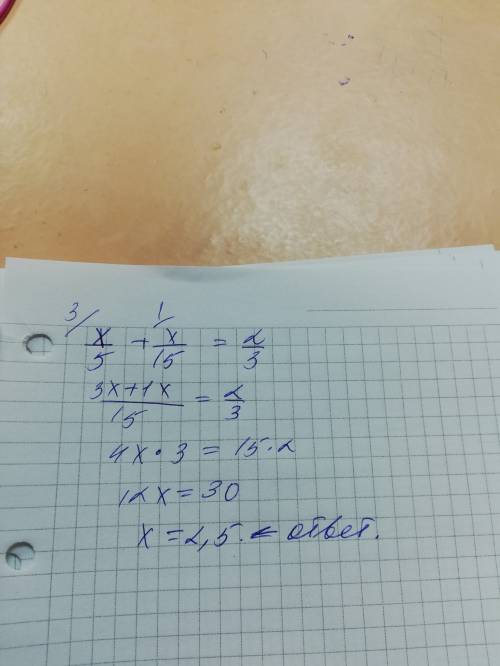 3/ 1/
x/5 + x/15 = 2/3
3x+1x/15 = 2/3
4x • 3 = 15 • 2
12x = 30
x = 2,5. ← ответ.